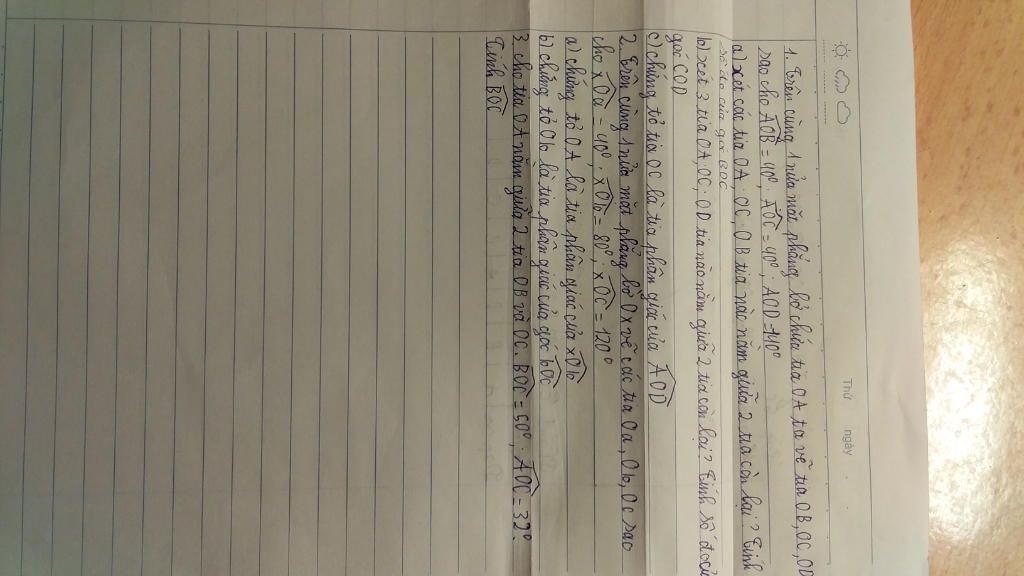 Thứ ngày
1. Trên cùng 1 nửa mặt phẳng bờ chứa tia OA ta vẽ tia OB, OC, OD
sao cho AOB = 40°, AOC = 70°, AOD = 140°
a) xét các tia OA, OC, OB tia nào nằm giữa 2 tia còn lại? Tính
số đo của góc BOC
b) xét 3 tia OA, OC, OD tia nào nằm giữa 2 tia còn lại? Tính số đo củ
góc COD
c) chứng tỏ tia OC là tia phân giác của AOD
2. Trên cùng 1 nửa mặt phẳng bờ Ox vẽ các tia Oa, Ob, Oc sao
cho xOa = 40°, xOb = 80°, xOc = 120°
a) chứng tỏ OA là tia phân giác của xOb
b) chứng tỏ Ob là tia phân giác của góc bOc
3. cho tia OA nằm giữa 2 tia OB và OC. BOC = 60°, AOC = 32°.
Tính BOC